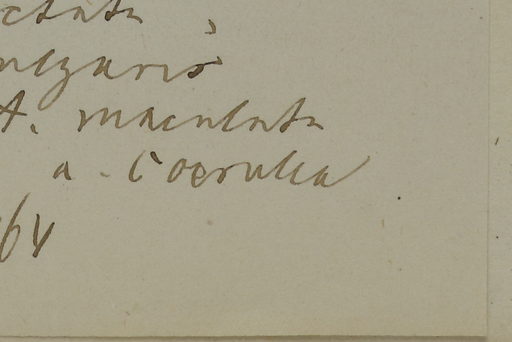 ctata,
ulgaris
A. maculata
a. Coerulea
64